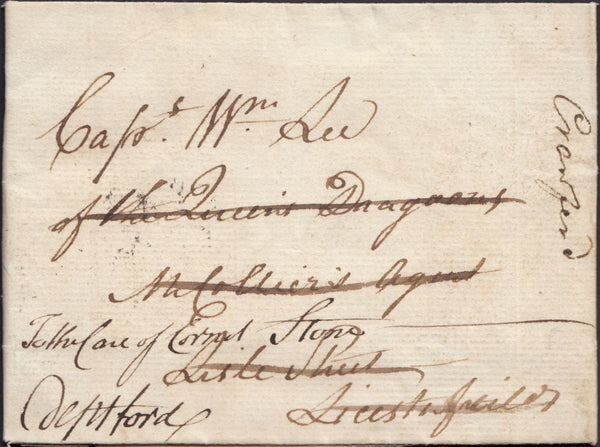 Capt.s Wm. Lee
of the Queen's Dragoons
Mr Collier's Agent
To the Care of Cornet Stone
Lisle Street
Deptford
Leicester fields